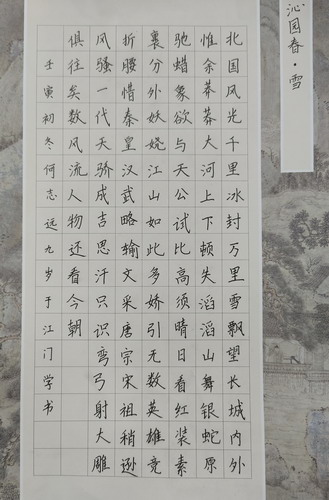 沁园春·雪
北国风光千里冰封万里雪飘望长城内外
惟余莽莽大河上下顿失滔滔山舞银蛇原
驰蜡象欲与天公试比高须晴日看红装素
裹分外妖娆江山如此多娇引无数英雄竞
折腰惜秦皇汉武略输文采唐宗宋祖稍逊
风骚一代天骄成吉思汗只识弯弓射大雕
俱往矣数风流人物还看今朝
壬寅初冬何志远九岁于江门学书